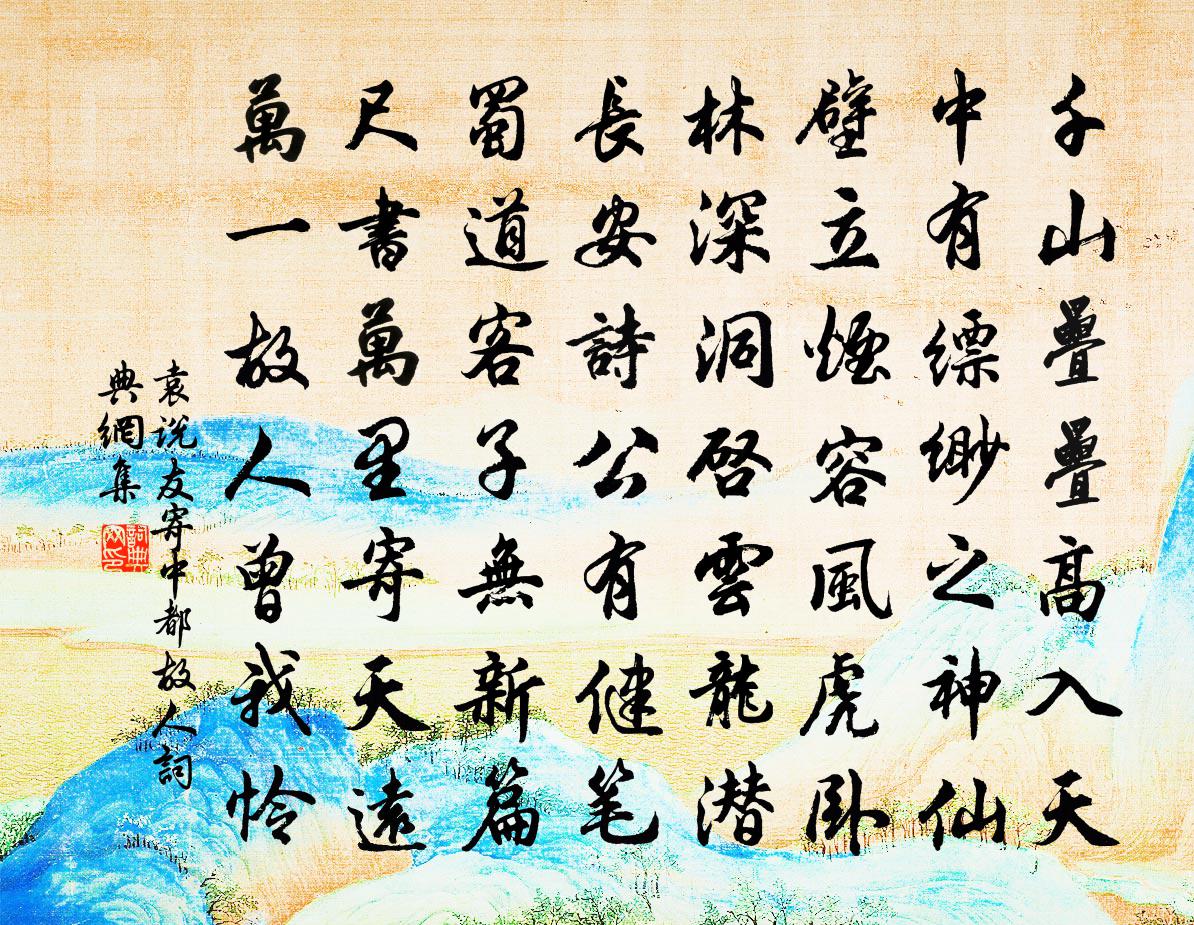 千山疊疊高入天
中有縹緲之神仙
壁立煙容風虎卧
林深洞啓雲龍潛
長安詩公有健笔
蜀道客子無新篇
尺書萬里寄天遠
萬一故人曾我怜
袁说友寄中都故人詞
典網集
詞典網印